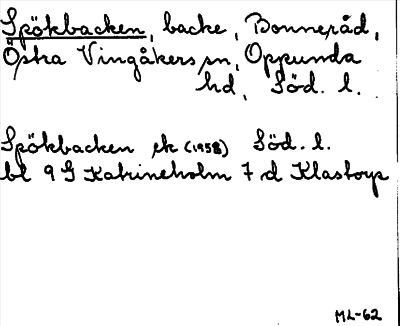 Spökbacken, backe, Bonneråd,
Östra Vingåkers sn, Oppunda
hd, Söd. l.
Spökbacken ek (1958) Söd. l.
bl 9 G Katrineholm 7 d Klastorp
ML-62